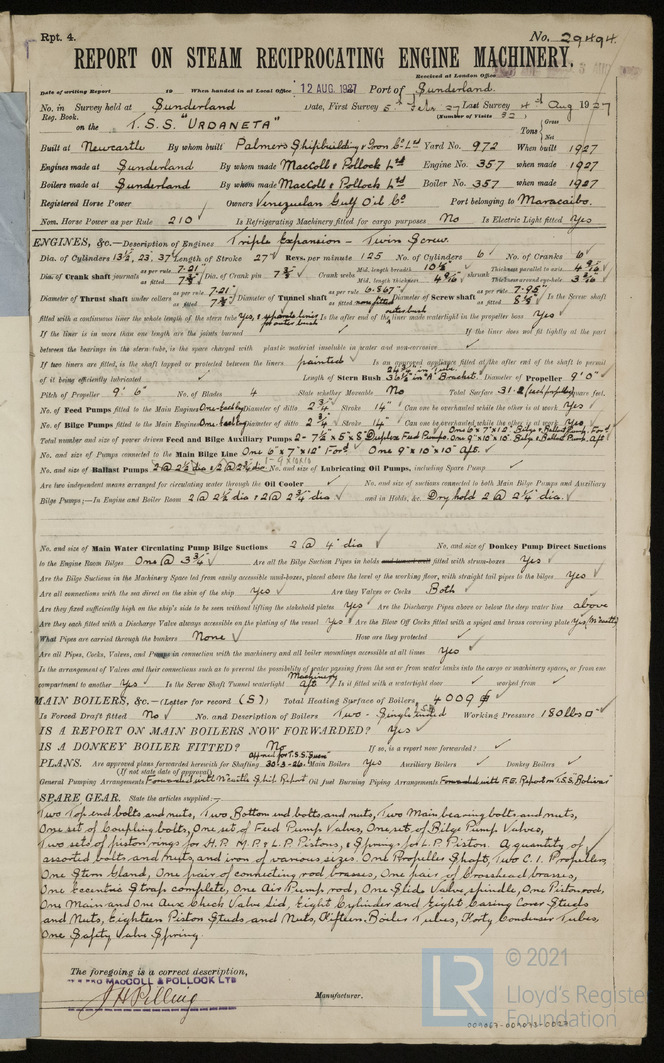 Rpt. 4. No. 29494.
REPORT ON STEAM RECIPROCATING ENGINE MACHINERY.
Received at London Office
Date of writing Report 19 When handed in at Local Office 12 AUG. 1927 Port of Sunderland.
No. in Survey held at Sunderland Date, First Survey 5th Feby 27 Last Survey 4th Aug 1927
Reg. Book. (Number of Visits 32)
on the T.S.S. "URDANETA" Tons { Gross Net
Built at Newcastle By whom built Palmers Shipbuilding & Iron Co Ltd Yard No. 972 When built 1927
Engines made at Sunderland By whom made MacColl & Pollock Ltd Engine No. 357 when made 1927
Boilers made at Sunderland By whom made MacColl & Pollock Ltd Boiler No. 357 when made 1927
Registered Horse Power Owners Venezuelan Gulf Oil Co Port belonging to Maracaibo.
Nom. Horse Power as per Rule 210 Is Refrigerating Machinery fitted for cargo purposes No Is Electric Light fitted Yes
ENGINES, &c.—Description of Engines Triple Expansion - Twin Screw.
Dia. of Cylinders 13½, 23, 37 Length of Stroke 27 Revs. per minute 125 No. of Cylinders 6 No. of Cranks 6
Dia. of Crank shaft journals as per rule 7.21 as fitted 7¾ Dia. of Crank pin 7¾ Crank webs Mid. length breadth 10½ Mid. length thickness 4 9/16 shrunk Thickness parallel to axis 4 9/16 Thickness around eye-hole 3 9/16
Diameter of Thrust shaft under collars as per rule 7.21 as fitted 7¾ Diameter of Tunnel shaft as per rule 6.867 as fitted none fitted Diameter of Screw shaft as per rule 7.95 as fitted 8⅛ Is the Screw shaft
fitted with a continuous liner the whole length of the stern tube Yes, & separate liner for outer bush Is the after end of the liner made watertight in the propeller boss Yes
If the liner is in more than one length are the joints burned If the liner does not fit tightly at the part
between the bearings in the stern tube, is the space charged with plastic material insoluble in water and non-corrosive
If two liners are fitted, is the shaft lapped or protected between the liners painted Is an approved appliance fitted at the after end of the shaft to permit
of it being efficiently lubricated Length of Stern Bush 36½ in "A" Bracket. Diameter of Propeller 9' 0"
Pitch of Propeller 9' 6" No. of Blades 4 State whether Moveable No Total Surface 31.2 (each propeller) square feet.
No. of Feed Pumps fitted to the Main Engines One each by Diameter of ditto 2¾ Stroke 14" Can one be overhauled while the other is at work Yes
No. of Bilge Pumps fitted to the Main Engines One each by Diameter of ditto 2¾ Stroke 14" Can one be overhauled while the other is at work Yes
Total number and size of power driven Feed and Bilge Auxiliary Pumps 2 - 7½ x 5 x 8 Duplex Feed Pumps. One 6" x 7" x 12" Bilge & Ballast Pump Ford. One 9" x 10" x 10" Bilge & Ballast Pump Aft
No. and size of Pumps connected to the Main Bilge Line One 6" x 7" x 12" Ford One 9" x 10" x 10" Aft.
No. and size of Ballast Pumps No. and size of Lubricating Oil Pumps, including Spare Pump
Are two independent means arranged for circulating water through the Oil Cooler No. and size of suctions connected to both Main Bilge Pumps and Auxiliary
Bilge Pumps;—In Engine and Boiler Room 2 @ 2½ dia & 2 @ 2¾ dia and in Holds, &c. Dry hold 2 @ 2¼ dia.
No. and size of Main Water Circulating Pump Bilge Suctions 2 @ 4" dia No. and size of Donkey Pump Direct Suctions
to the Engine Room Bilges One @ 3¾ Are all the Bilge Suction Pipes in holds and tunnel well fitted with strum-boxes Yes
Are the Bilge Suctions in the Machinery Space led from easily accessible mud-boxes, placed above the level of the working floor, with straight tail pipes to the bilges Yes
Are all connections with the sea direct on the skin of the ship Yes Are they Valves or Cocks Both
Are they fixed sufficiently high on the ship's side to be seen without lifting the stokehold plates Yes Are the Discharge Pipes above or below the deep water line above
Are they each fitted with a Discharge Valve always accessible on the plating of the vessel Yes Are the Blow Off Cocks fitted with a spigot and brass covering plate Yes
What Pipes are carried through the bunkers None How are they protected
Are all Pipes, Cocks, Valves, and Pumps in connection with the machinery and all boiler mountings accessible at all times Yes
Is the arrangement of Valves and their connections such as to prevent the possibility of water passing from the sea or from water tanks into the cargo or machinery spaces, or from one
compartment to another Yes Is the Screw Shaft Tunnel watertight Machinery Aft Is it fitted with a watertight door worked from
MAIN BOILERS, &c.—(Letter for record (S)) Total Heating Surface of Boilers 4009
Is Forced Draft fitted No No. and Description of Boilers Two - Single ended Working Pressure 180 lbs
IS A REPORT ON MAIN BOILERS NOW FORWARDED? Yes
IS A DONKEY BOILER FITTED? No If so, is a report now forwarded?
PLANS. Are approved plans forwarded herewith for Shafting 30.3.26. Main Boilers Yes Auxiliary Boilers Donkey Boilers
(If not state date of approval)
General Pumping Arrangements Forwarded with N'castle Ship Report Oil Fuel Burning Piping Arrangements Forwarded with F.E. Report on T.S.S. "Bolivar"
SPARE GEAR. State the articles supplied:—
Two Top end bolts and nuts, Two Bottom end bolts and nuts, Two Main bearing bolts and nuts,
One set of Coupling bolts, One set of Feed Pump Valves, One set of Bilge Pump Valves,
Two sets of piston rings for H.P. M.P. & L.P. Pistons, & Springs for L.P. Piston. A quantity of
assorted bolts and nuts, and iron of various sizes. One Propeller Shaft, Two C.I. Propellers,
One Stern Gland, One pair of connecting rod brasses, One pair of Crosshead brasses,
One Eccentric Strap complete, One Air Pump rod, One Slide Valve spindle, One Piston rod,
One Main and One Aux Check Valve Lid, Eight Cylinder and Eight Casing Cover Studs
and Nuts, Eighteen Piston Studs and Nuts, Fifteen Boiler Tubes, Forty Condenser Tubes,
One Safety Valve Spring
The foregoing is a correct description,
PRO MACCOLL & POLLOCK LTD
J H Pilling Manufacturer.
LR © 2021
Lloyd's Register
Foundation
009067-009093-0027